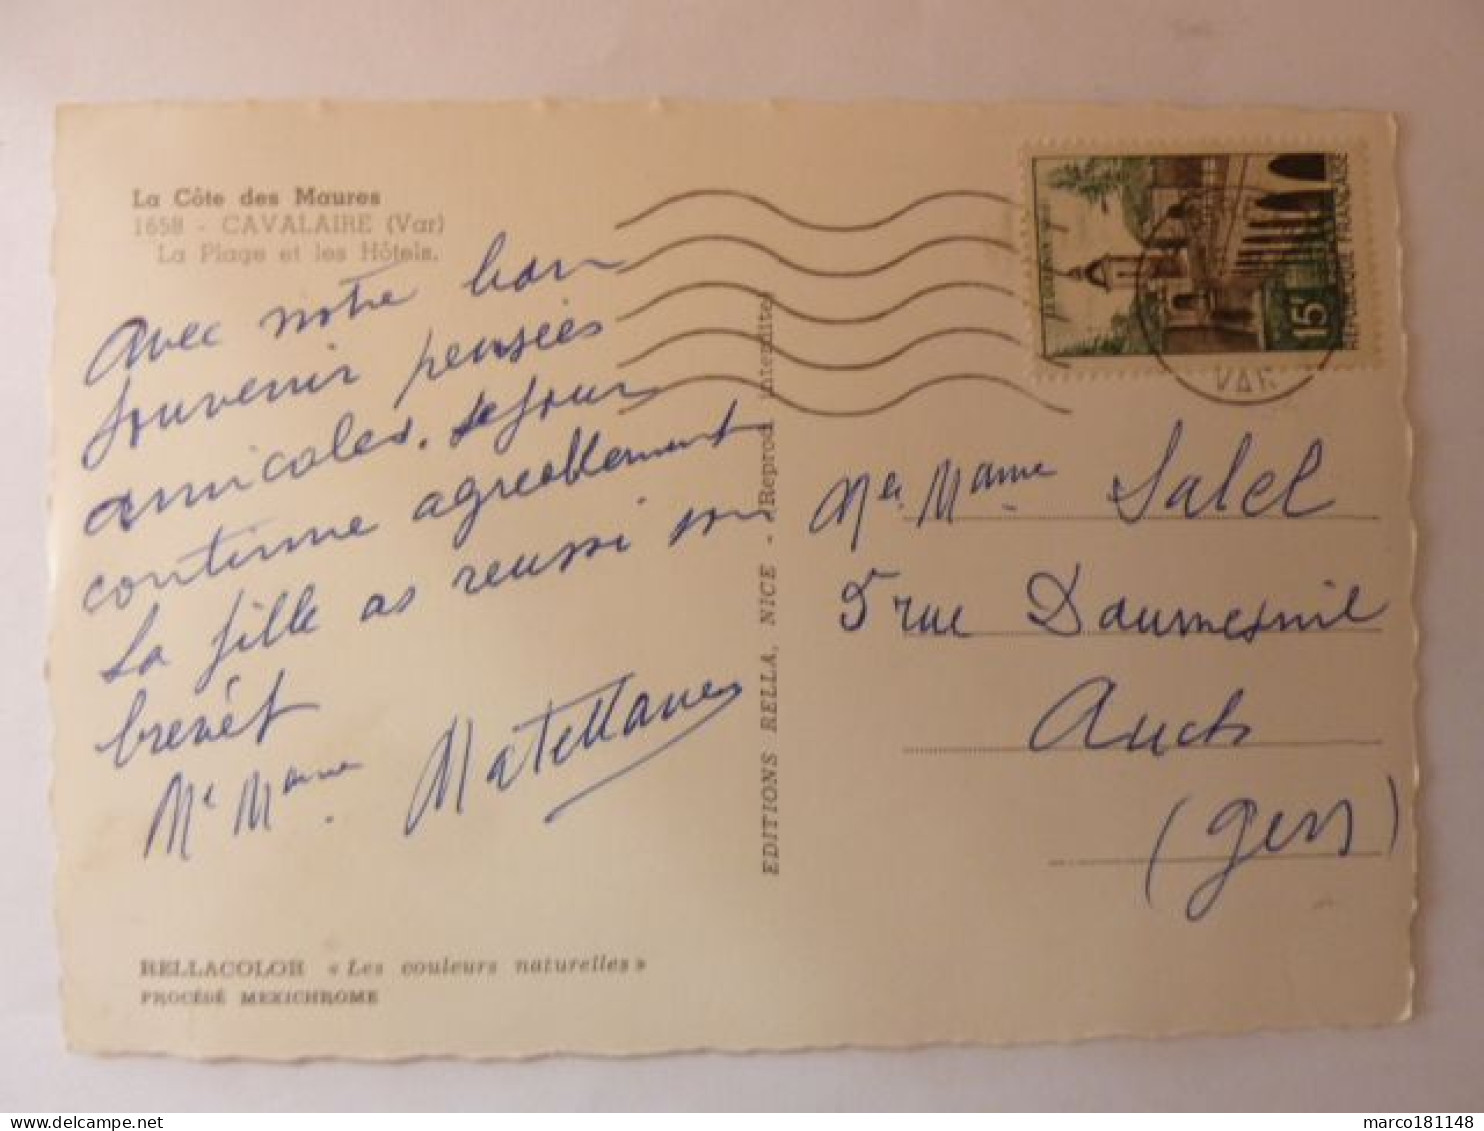 La Côte des Maures
1658 - CAVALAIRE (Var)
La Plage et les Hôtels.
Avec notre bon
souvenir pensées
amicales. Sejour
continue agreablement
la fille as reussi son
brevêt
Mr Mame
EDITIONS RELLA, NICE - (Reprod. interdite)
RELLACOLOR « Les couleurs naturelles »
PROCÉDÉ MEXICHROME
15F
REPUBLIQUE FRANÇAISE
VAR
Mer Mame Salel
5 rue Daumesnil
Auch
(Gers)
marco181148